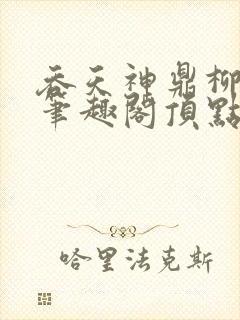 吞天神鼎柳
筆趣閣頂點
哈里法克斯